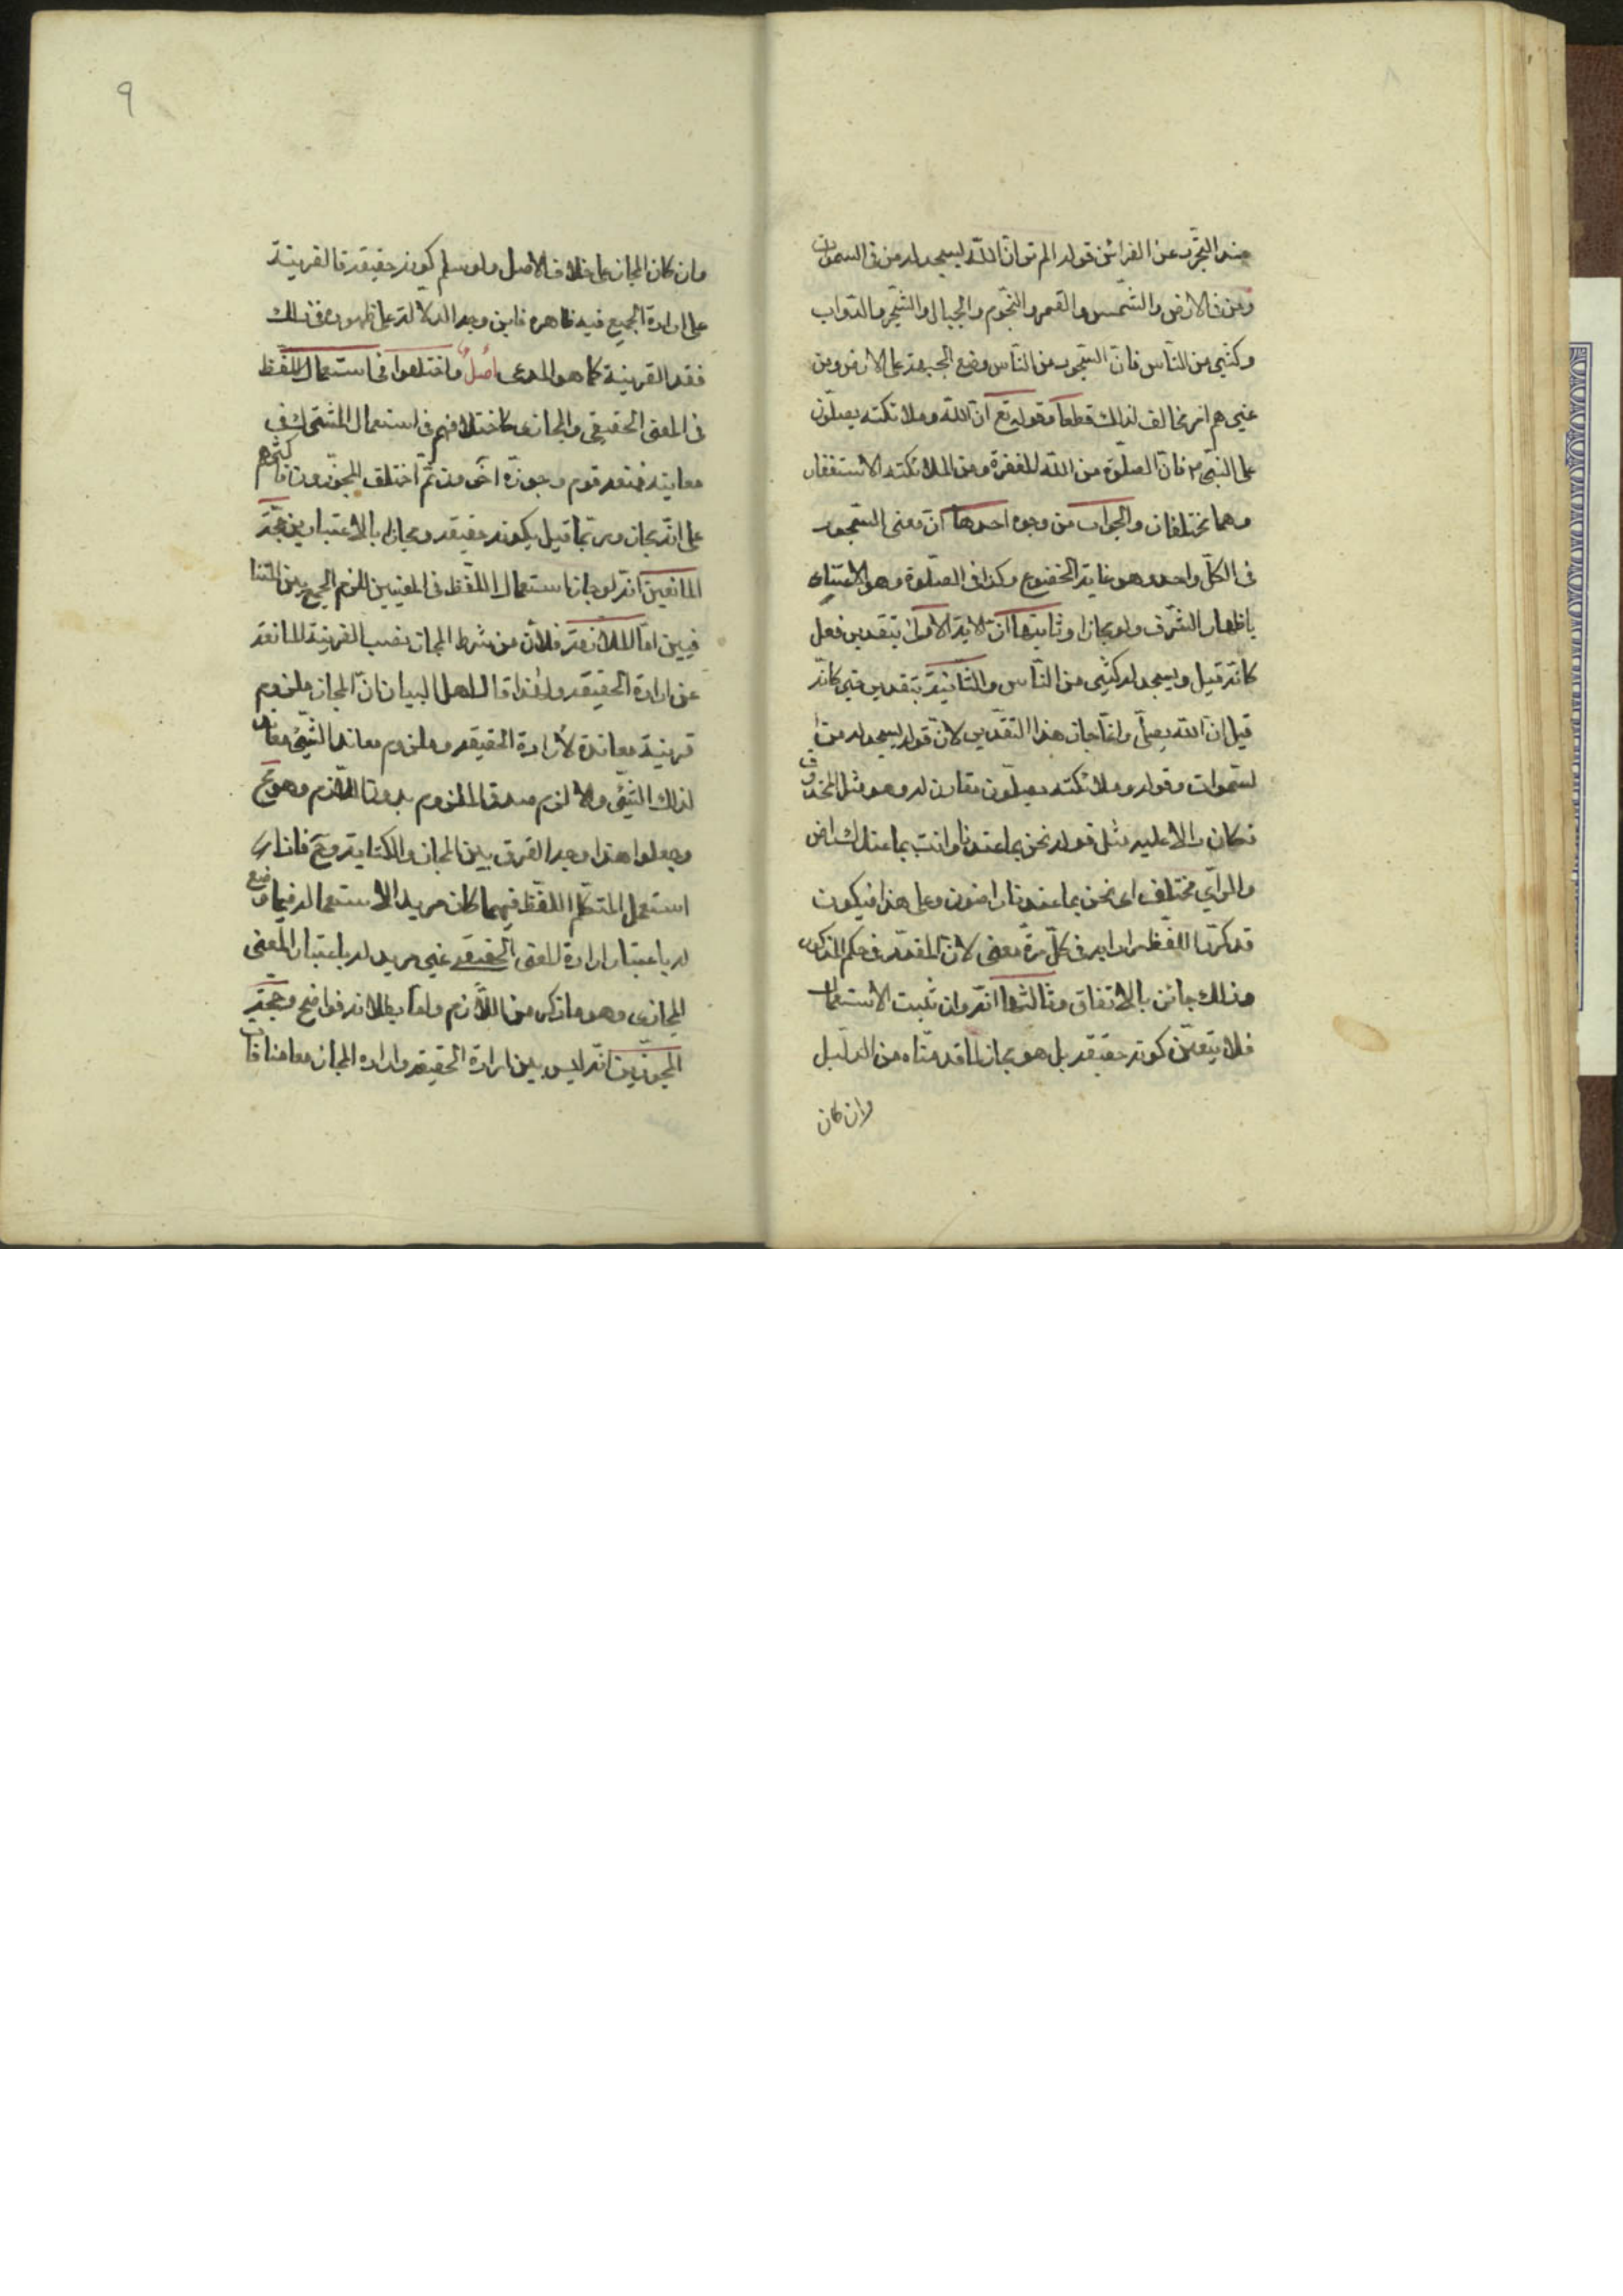 عند التجرد عن القرائن قوله الم تر ان اللّه يسجد له من فى السموات
ومن فى الارض والشمس والقمر والنجوم والجبال والشجر والدواب
وكثير من الناس فان السجود من الناس وضع الجبهة على الارض ومن
غيرهم امر مخالف لذلك قطعا وقوله تع ان اللّه وملائكته يصلون
على النبى فان الصلوة من اللّه المغفرة ومن الملائكة الاستغفار
وهما مختلفان والجواب من وجوه احدها ان معنى السجود
فى الكل واحد وهو غاية الخضوع وكذا فى الصلوة وهو الاعتناء
باظهار الشرف ولو مجازا وثانيها ان الاية الاولى بتقدير فعل
كانه قيل ويسجد له كثير من الناس والثانية بتقدير خبر كانه
قيل ان اللّه يصلى وانما جاز هذا التقدير لان قوله يسجد له من فى
السموات وقوله وملائكته يصلون مقارن له وهو مثل المحذوف
فكان دالا عليه مثل قوله نحن بما عندنا وانت بما عندك راض
والراى مختلف اى نحن بما عندنا راضون وعلى هذا فيكون
قد كرر اللفظ مرادا به فى كل مرة معنى لان المقدر فى حكم المذكور
وذلك جائز بالاتفاق وثالثها انه وان ثبت الاستعمال
فلا يتعين كونه حقيقة بل هو مجاز لما قدمناه من الدليل
وان كان
٩
وان كان المجاز على خلاف الاصل ولو سلم كونه حقيقة فالقرينة
على ارادة الجميع فيه ظاهرة فاين وجه الدلالة على ظهوره فى ذلك
فقد القرينة كما هو المدعى اصل واختلفوا فى استعمال اللفظ
فى المعنى الحقيقى والمجازى كاختلافهم فى استعمال المشترك فى
معانيه فمنعه قوم وجوزه اخرون ثم اختلف المجوزون فاكثرهم
على انه مجاز وربما قيل بكونه حقيقة ومجازا بالاعتبارين حجة
المانعين انه لو جاز استعمال اللفظ فى المعنيين للزم الجمع بين المتنا
فيين اما الملازمة فلان من شرط المجاز نصب القرينة المانعة
عن ارادة الحقيقة ولهذا قال اهل البيان ان المجاز ملزوم
قرينة معاندة لارادة الحقيقة وملزوم معاند الشئ معاند
لذلك الشئ والا لزم صدق الملزوم بدون اللازم وهو مح
وجعلوا هذا وجه الفرق بين المجاز والكناية وح فاذا
استعمل المتكلم اللفظ فيهما كان مريدا لاستعماله فيما وضع
له باعتبار ارادة المعنى الحقيقى غير مريد له باعتبار المعنى
المجازى وهو ما ذكر من اللازم واما بطلانه فواضح وحجة
المجوزين انه ليس بين ارادة الحقيقة وارادة المجاز معا منافاة